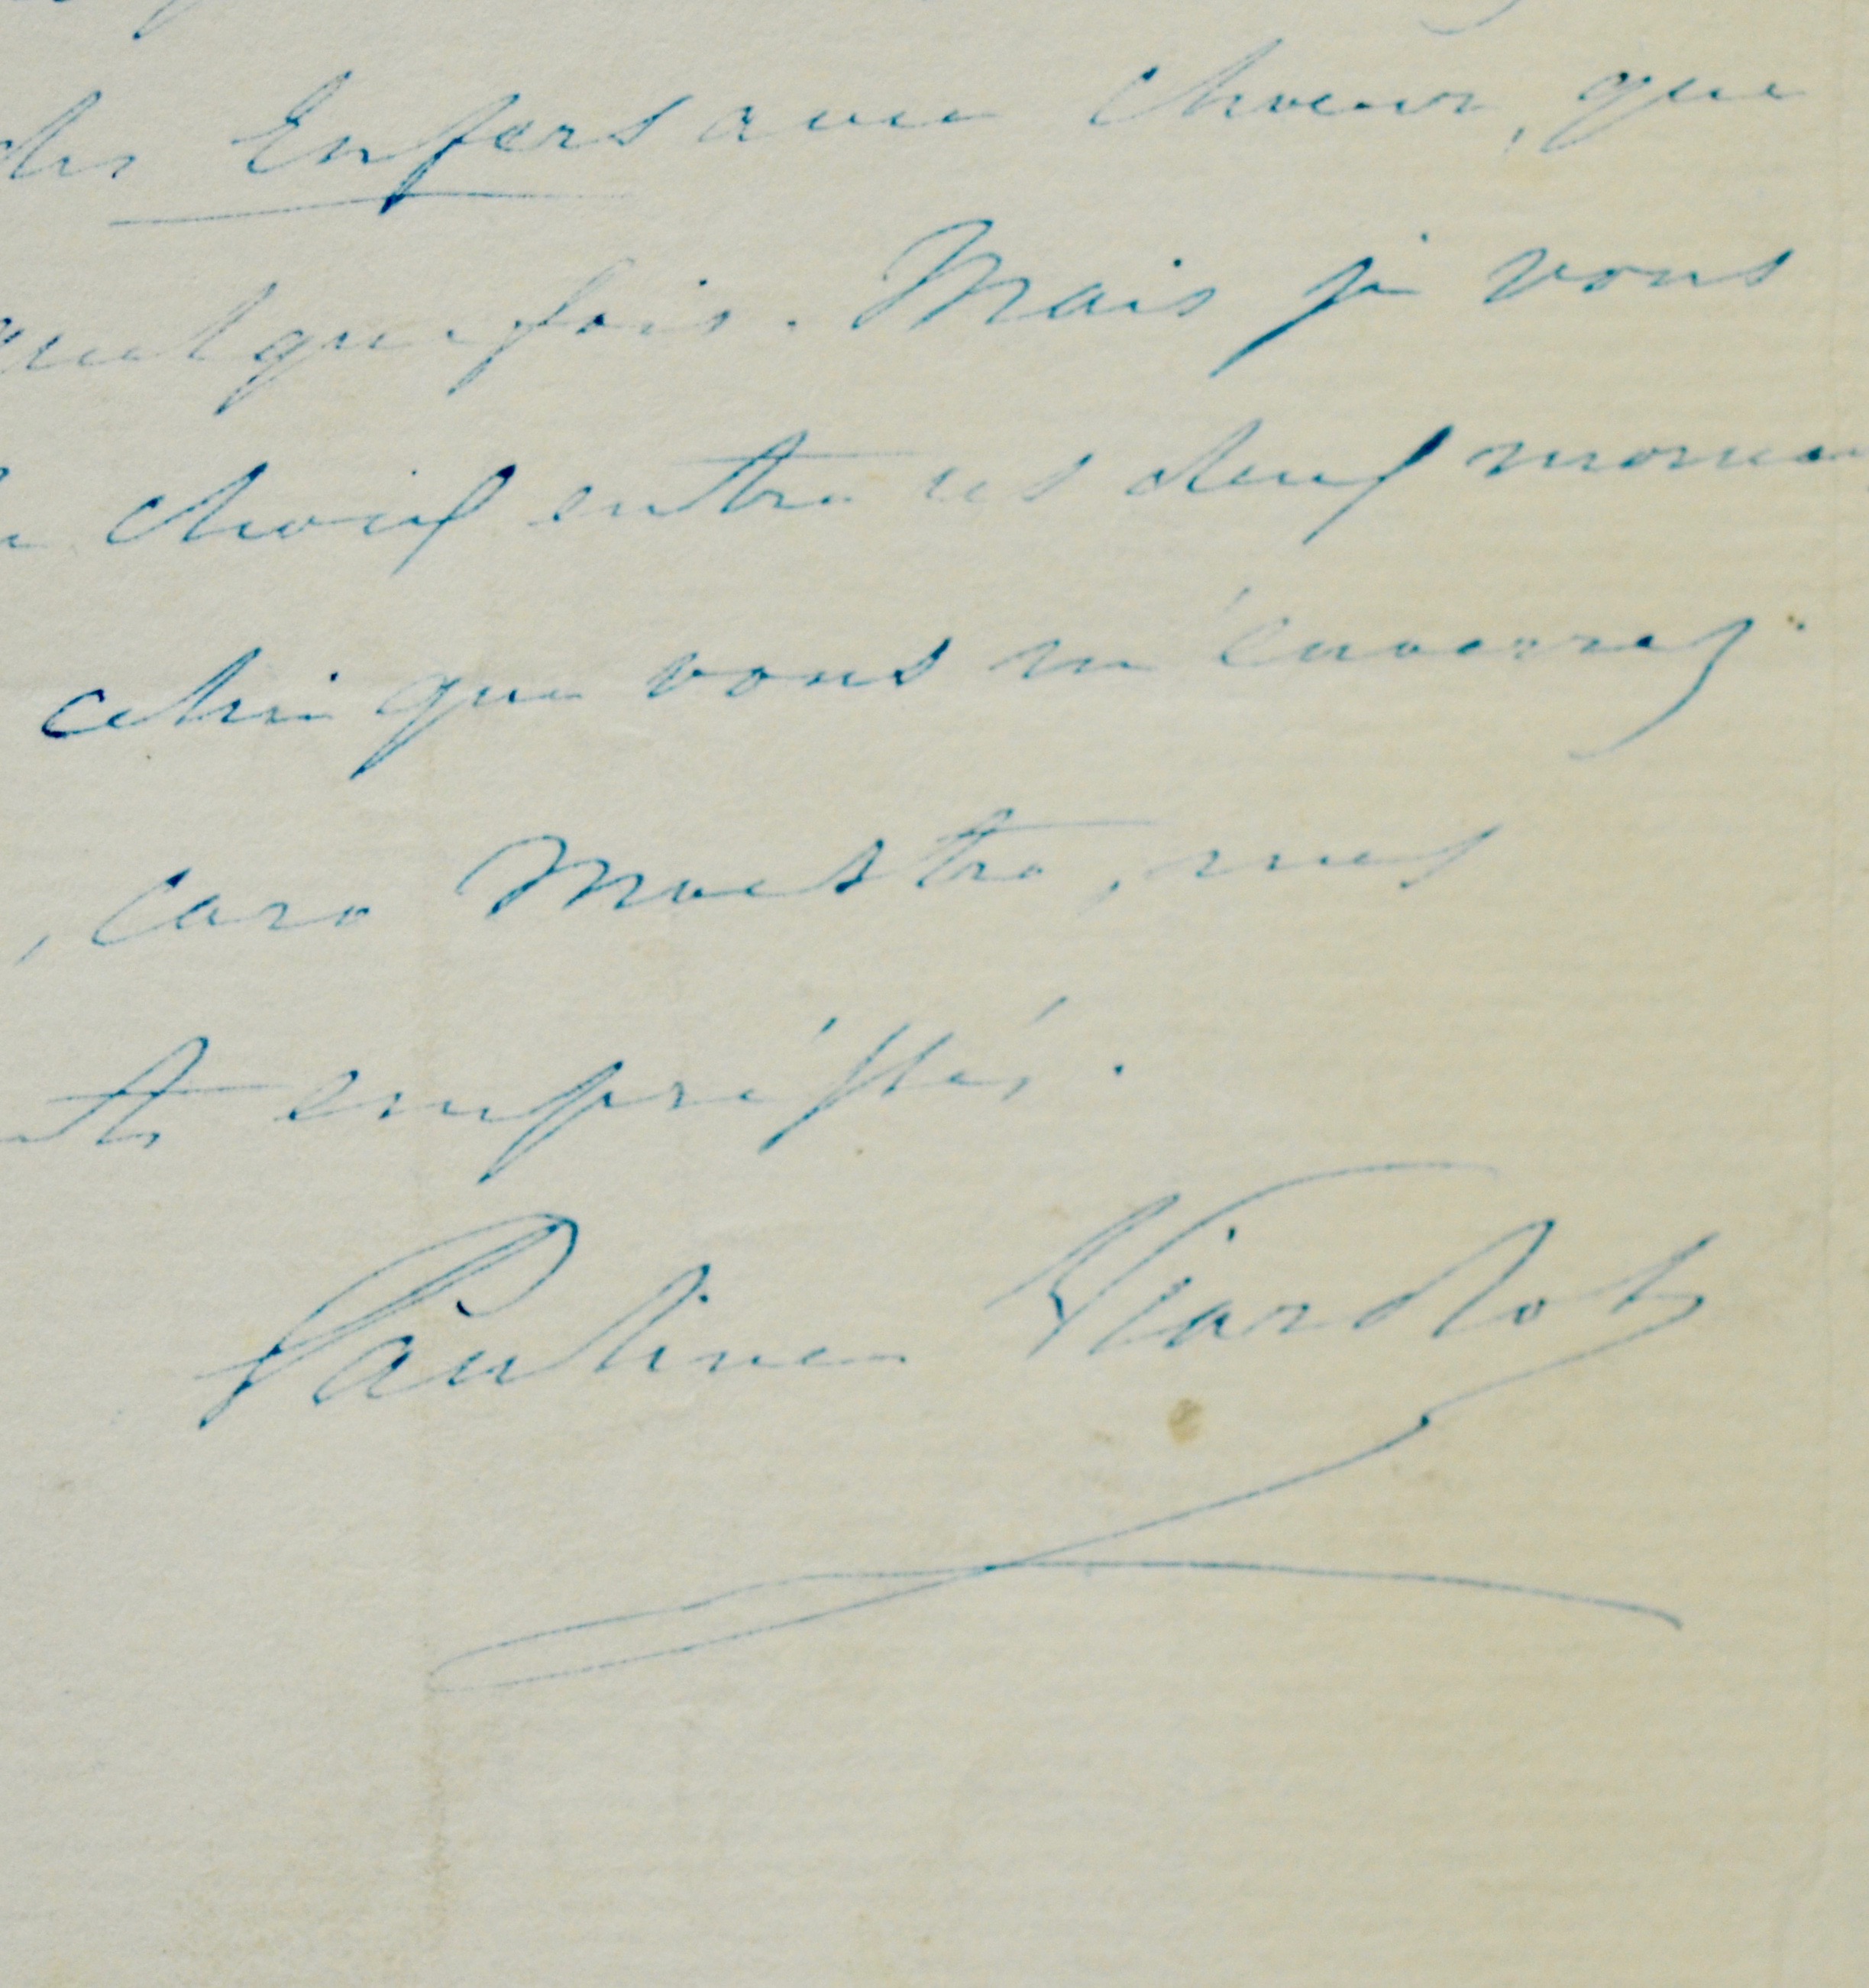 des Enfers avec choeur, que
quelquefois. Mais je vous
choix entre ces deux
celui que vous m'enverrez
, caro Maestro, mes
empréssés.
Pauline Viardot